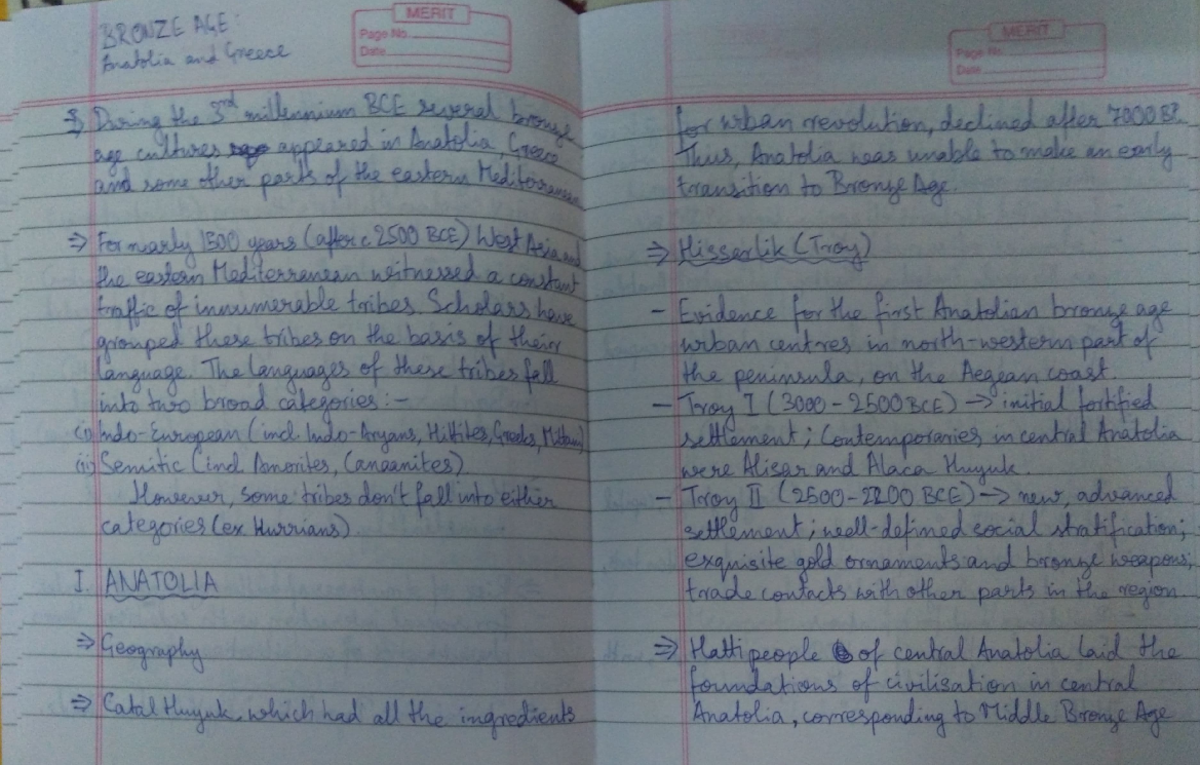 BRONZE AGE:
Anatolia and Greece
MERIT
Page No.
Date
⇒ During the 3rd millennium BCE several bronze
age cultures appeared in Anatolia, Greece
and some other parts of the eastern Mediterranean
⇒ For nearly 1500 years (after c 2500 BCE) West Asia and
the eastern Mediterrenean witnessed a constant
traffic of innumerable tribes. Scholars have
grouped these tribes on the basis of their
language. The languages of these tribes fall
into two broad categories:-
(i) Indo-European (incl. Indo-Aryans, Hittites, Greeks, Mittani)
(ii) Semitic (incl Amorites, Canaanites)
However, some tribes don't fall into either
categories (ex. Hurrians)
I. ANATOLIA
⇒ Geography
⇒ Catal Huyuk, which had all the ingredients
MERIT
Page No.
Date
for urban revolution, declined after 7000 BP.
Thus, Anatolia was unable to make an early
transition to Bronze Age.
⇒ Hisserlik (Troy)
- Evidence for the first Anatolian bronze age
urban centres in north-western part of
the peninsula, on the Aegean coast.
- Troy I (3000-2500 BCE) → initial fortified
settlement; Contemporaries in central Anatolia
were Alisar and Alaca Huyuk.
- Troy II (2500-2200 BCE) → new, advanced
settlement; well-defined social stratification;
exquisite gold ornaments and bronze weapons;
trade contacts with other parts in the region
⇒ Hatti people of central Anatolia laid the
foundations of civilisation in central
Anatolia, corresponding to Middle Bronze Age